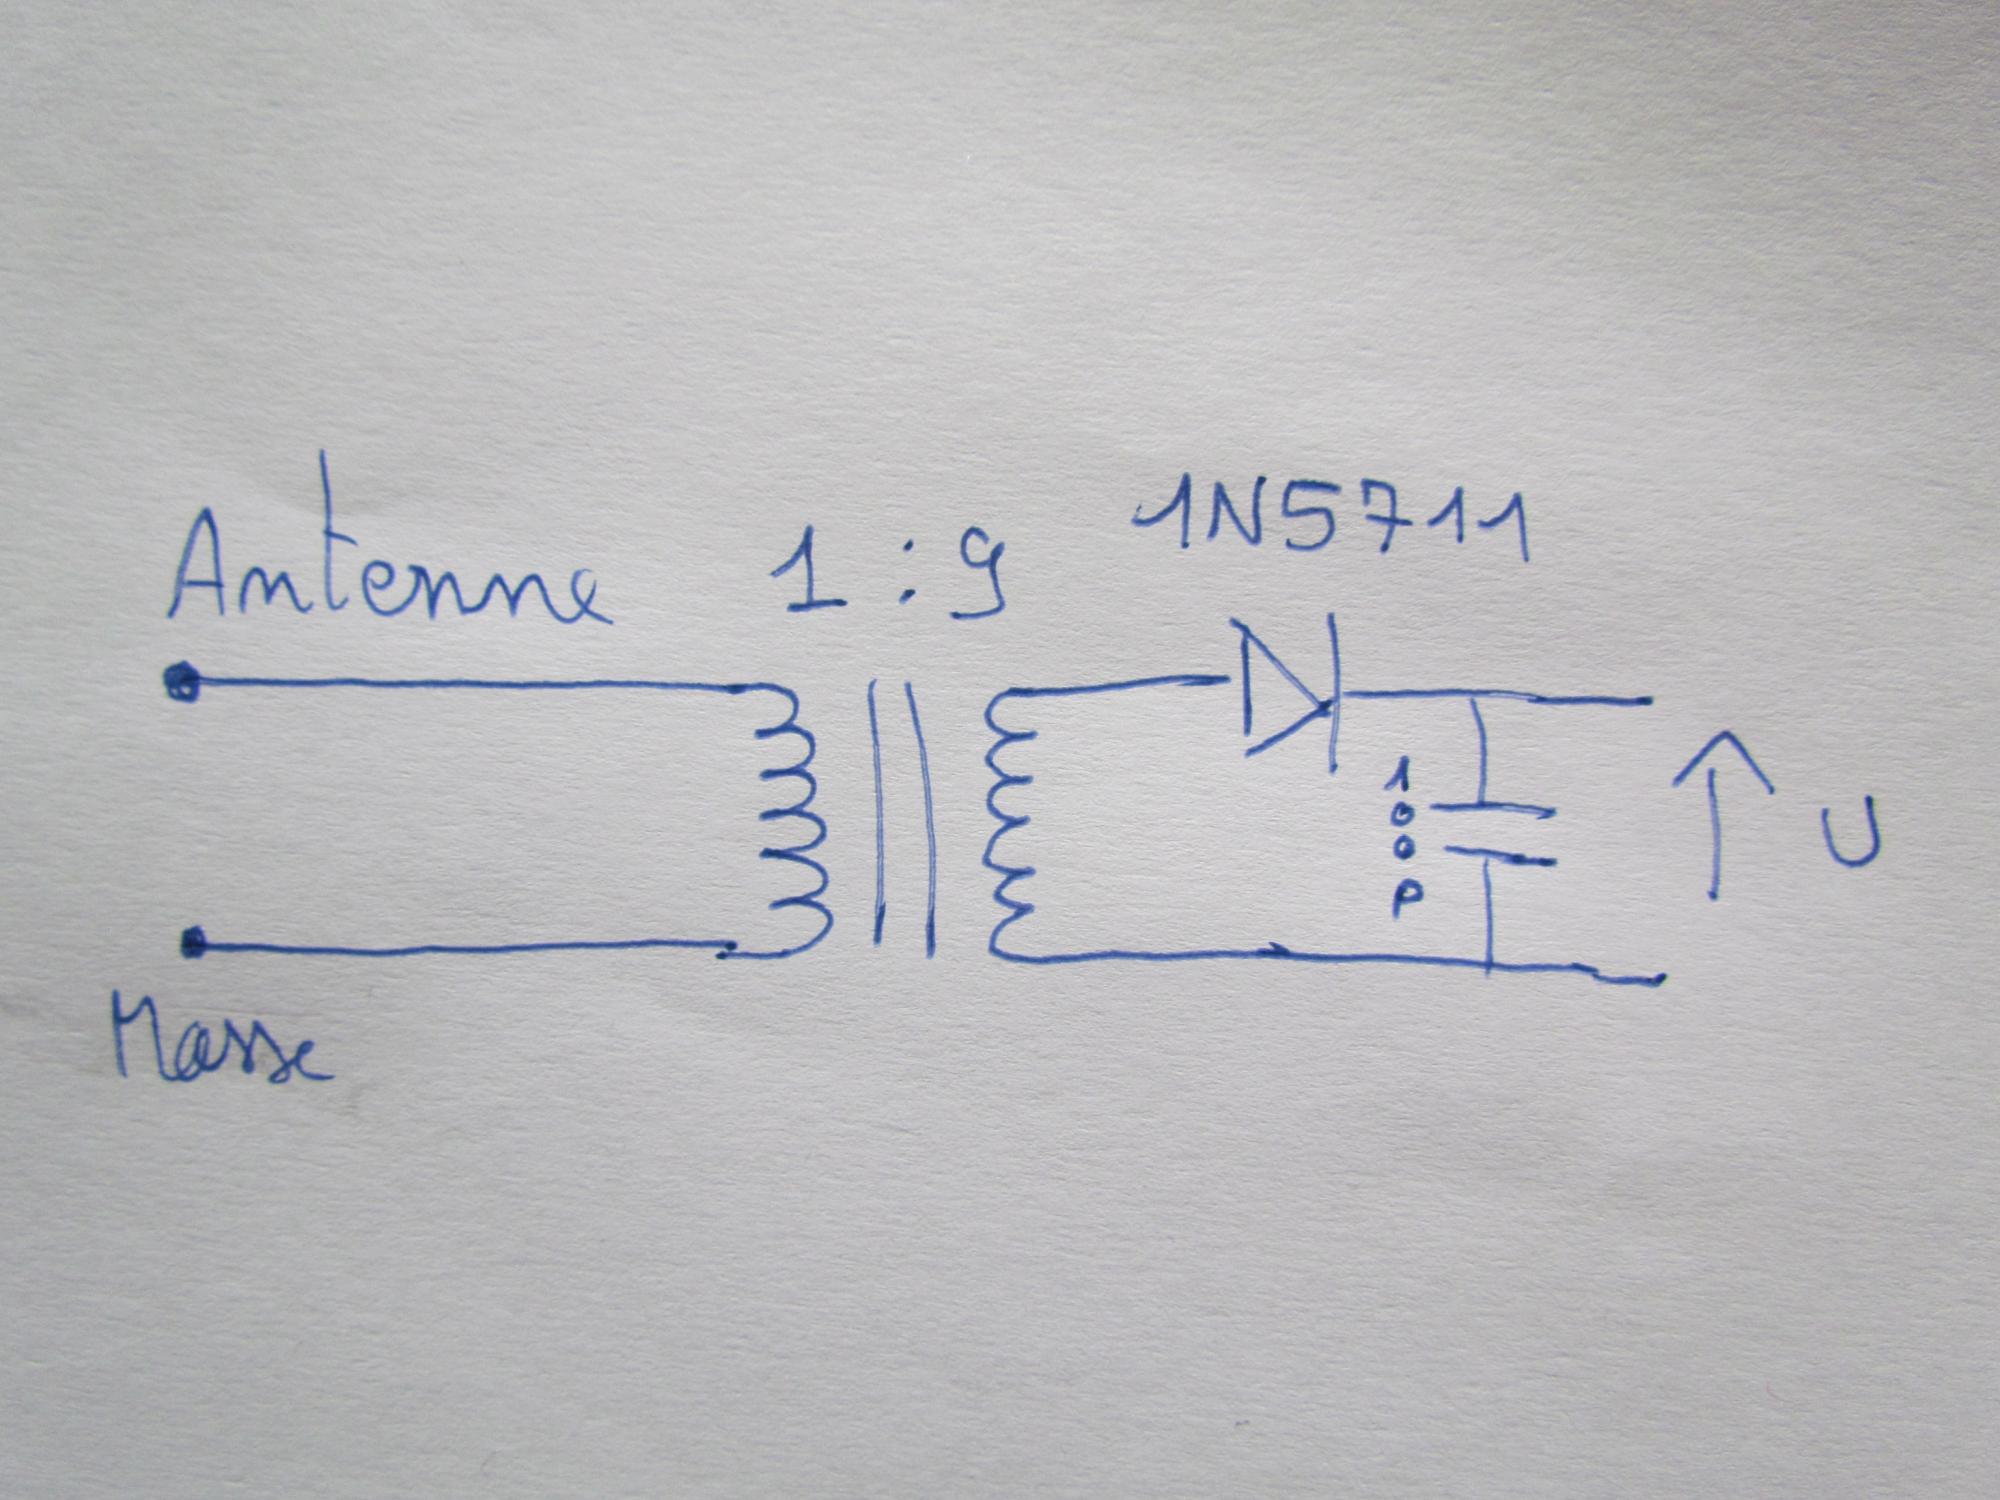 Antenne
1 : 9
1N5711
100p
U
Masse